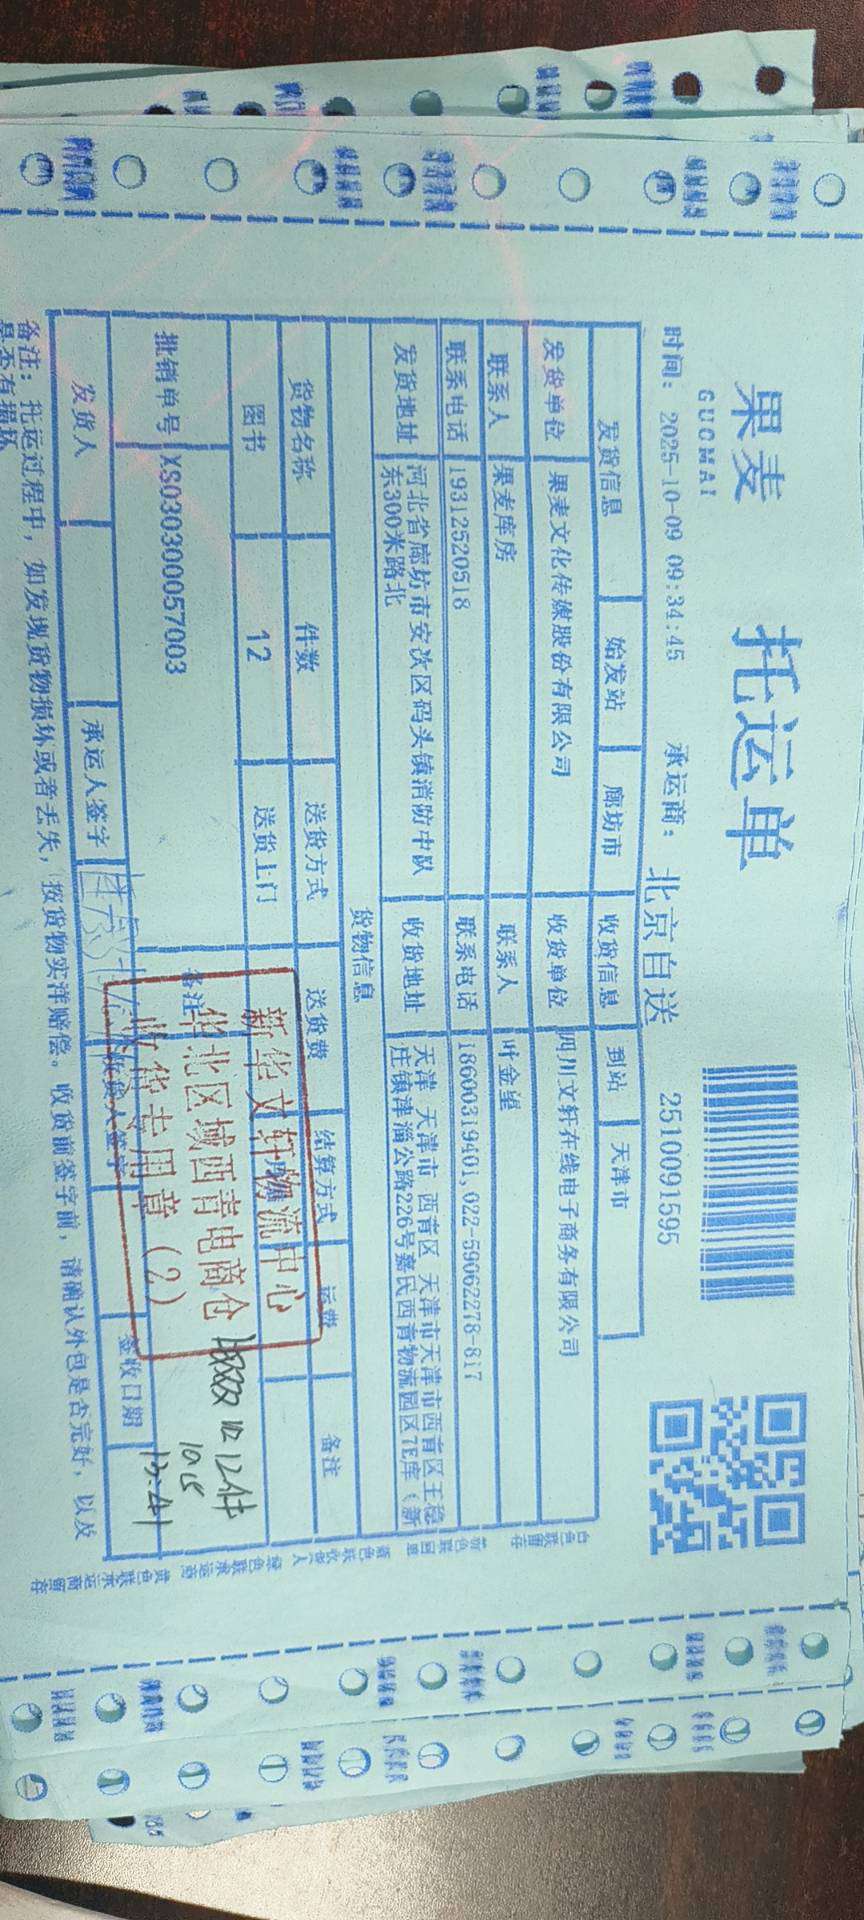 果麦
GUOMAI
托运单
2510091595
时间: 2025-10-09 09:34:45
承运商: 北京自送
发货信息 始发站 廊坊市 收货信息 到站 天津市
发货单位 果麦文化传媒股份有限公司 收货单位 四川文轩在线电子商务有限公司
联系人 果麦库房 联系人 叶金望
联系电话 19312520518 联系电话 18600319401,022-59062278-817
发货地址 河北省廊坊市安次区码头镇消防中队
东300米路北
收货地址 天津 天津市 西青区 天津市天津市西青区王稳
庄镇津淄公路226号嘉民西青物流园区7E库(新
货物信息
货物名称 件数 送货方式 送货费 结算方式 运费 备注
图书 12 送货上门
批销单号 XS030300057003 备注
新华文轩物流中心
华北区域西青电商仓
收货专用章(2)
12件
10.15
13:41
发货人 承运人签字 收货人签字 签收日期
备注: 托运过程中, 如发现货物损坏或者丢失, 按货物实洋赔偿。收货前签字前, 请确认外包是否完好, 以及
是否有损坏
白色联留存 粉色联回单 蓝色联收货人 绿色联承运商 黄色联承运商留存